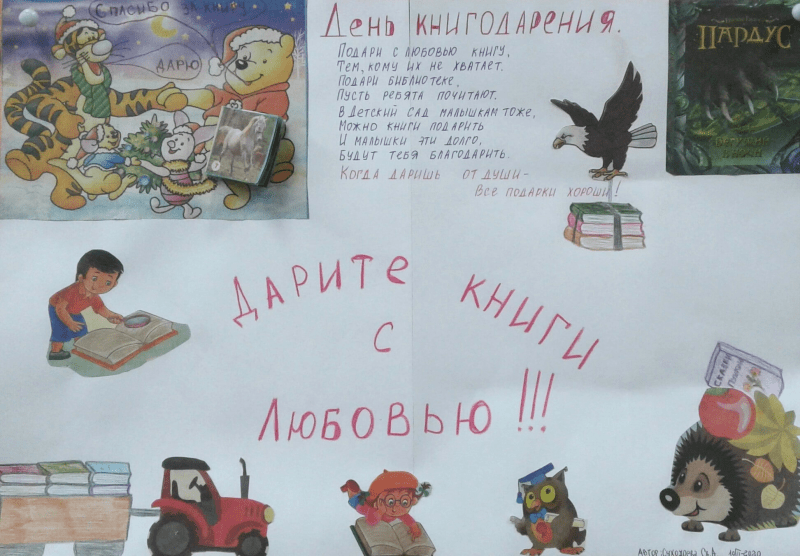 Спасибо за книгу
Дарю
День книгодарения.
Подари с любовью книгу,
Тем, кому их не хватает.
Подари библиотеке,
Пусть ребята почитают.
В детский сад малышкам тоже,
Можно книги подарить
И малышки эти долго,
Будут тебя благодарить.
Когда даришь от души –
Все подарки хороши!
ПАРДУС
Дарите книги
с
любовью!!!
Сказки
Автор: